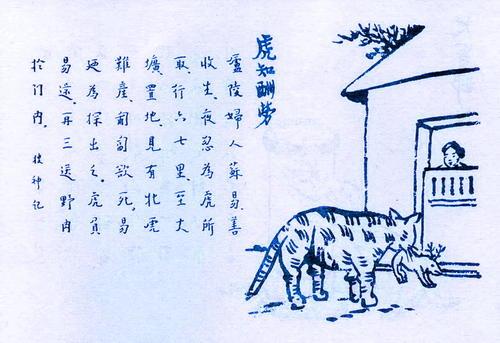 虎知酬勞
廬陵婦人蘇易善
收生、夜忽為虎所
取、行六七里、至大
壙、置地、見有牝虎
難產、匍匐欲死。易
迺為探出之。虎負
易還、再三送野肉
於门内。 搜神記